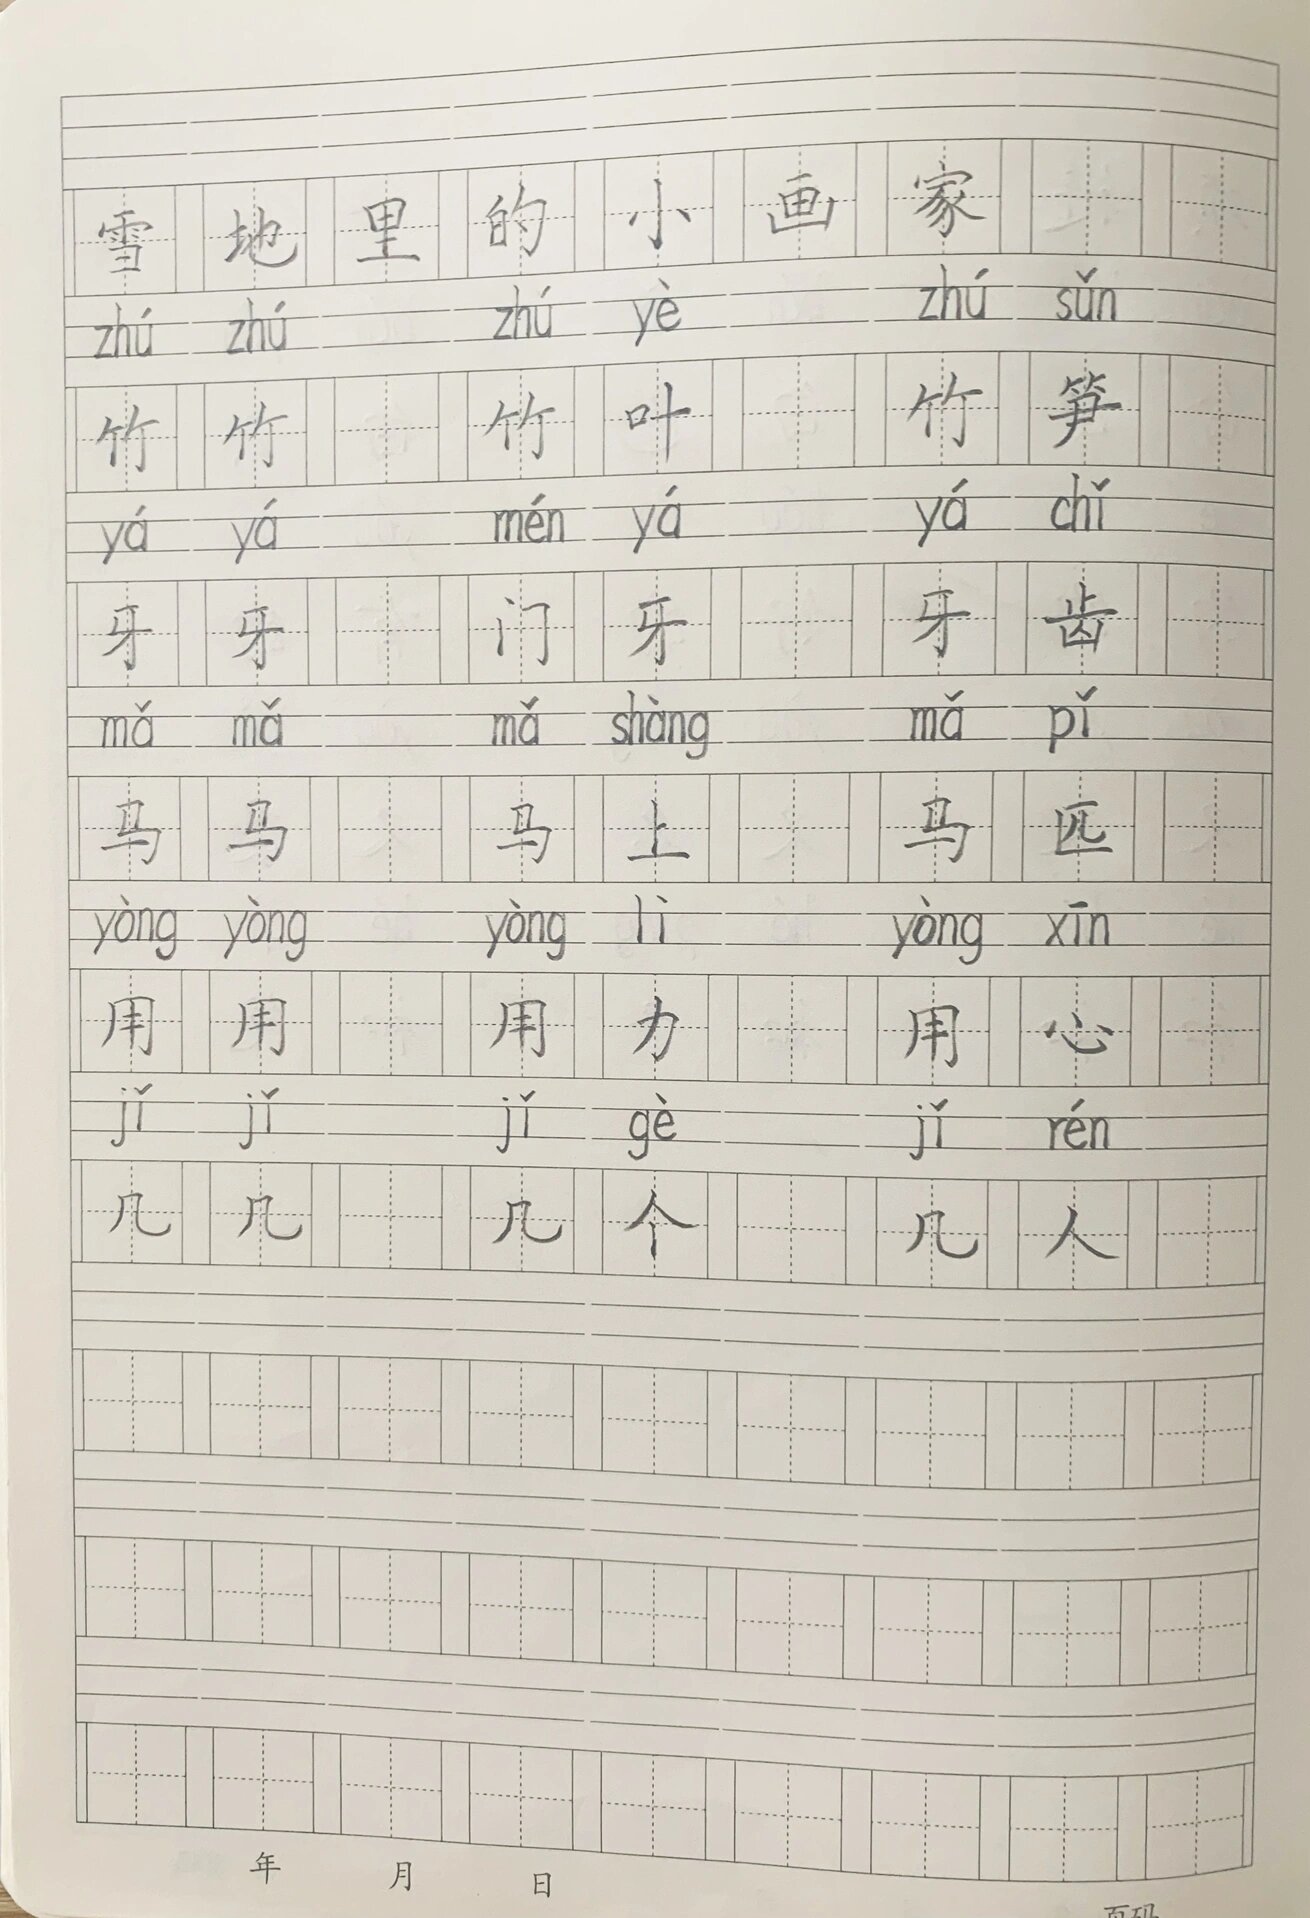 雪地里的小画家
zhú zhú zhú yè zhú sǔn
竹 竹 竹 叶 竹 笋
yá yá mén yá yá chǐ
牙 牙 门 牙 牙 齿
mǎ mǎ mǎ shàng mǎ pǐ
马 马 马 上 马 匹
yòng yòng yòng lì yòng xīn
用 用 用 力 用 心
jǐ jǐ jǐ gè jǐ rén
几 几 几 个 几 人
年 月 日
页码